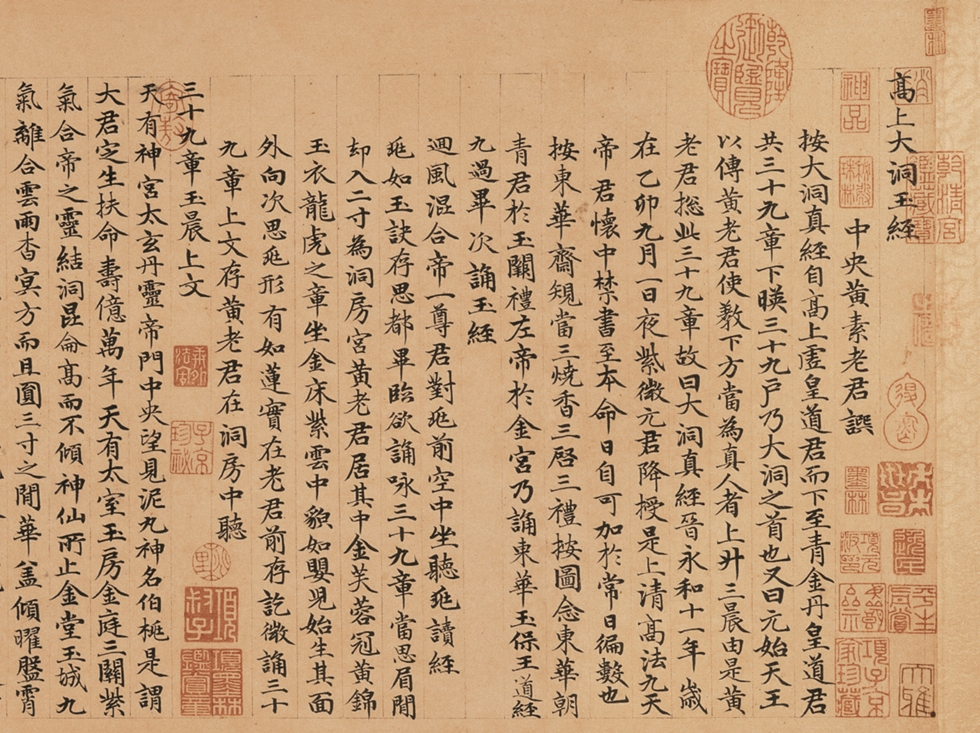 高上大洞玉經
中央黃素老君譔
按大洞真經自高上虛皇道君而下至青金丹皇道君
共三十九章下暎三十九戶乃大洞之首也又曰元始天王
以傳黃老君使教下方當為真人者上升三晨由是黃
老君捴此三十九章故曰大洞真經晉永和十一年歲
在乙卯九月一日夜紫微元君降授是上清高法九天
帝君懷中禁書至本命日自可加於常日徧數也
按東華齋規當三燒香三啓三禮按圖念東華朝
青君於玉闕禮左帝於金宮乃誦東華玉保王道經
九過畢次誦玉經
迴風混合帝一尊君對兆前空中坐聽兆讀經
兆如玉訣存思都畢臨欲誦咏三十九章當思眉間
却入二寸為洞房宮黃老君居其中金芙蓉冠黃錦
玉衣龍虎之章坐金床紫雲中貌如嬰兒始生其面
外向次思兆形有如蓮實在老君前存訖微誦三十
九章上文存黃老君在洞房中聽
三十九章玉晨上文
天有神宮太玄丹靈帝門中央望見泥丸神名伯桃是謂
大君定生扶命壽億萬年天有太室玉房金庭三關紫
氣合帝之靈結洞昆侖高而不傾神仙所止金堂玉城九
氣離合雲雨杳冥方而且圓三寸之間華盖傾曜盤霄
乾隆御覽之寶
神品
乾清宮鑑藏寶
子京
墨林
大雅
項元汴印
子孫世昌
項子京家珍藏
項叔子
項墨林鑑賞章
子京珍祕
桃里